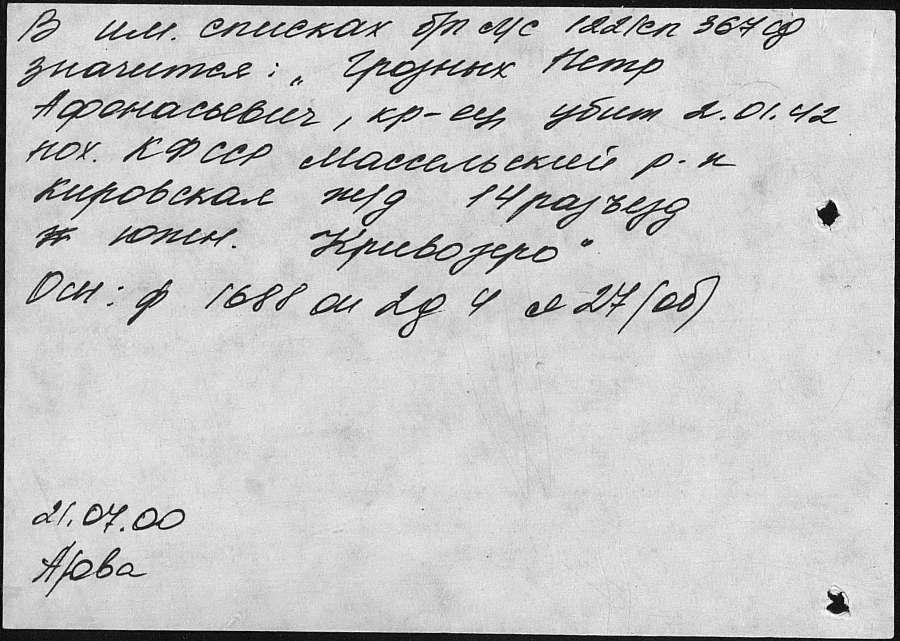 В им. списках б/п л/с 1221сп 367 сд
значится: „Грозных Петр
Афонасьевич, кр-ец убит 2.01.42
пох. КФССР Массельский р-н
Кировская ж/д 14 разъезд
южн. "Кривозеро"
Осн: ф 1688 оп 2 д 4 л 27 (об)
21.07.00